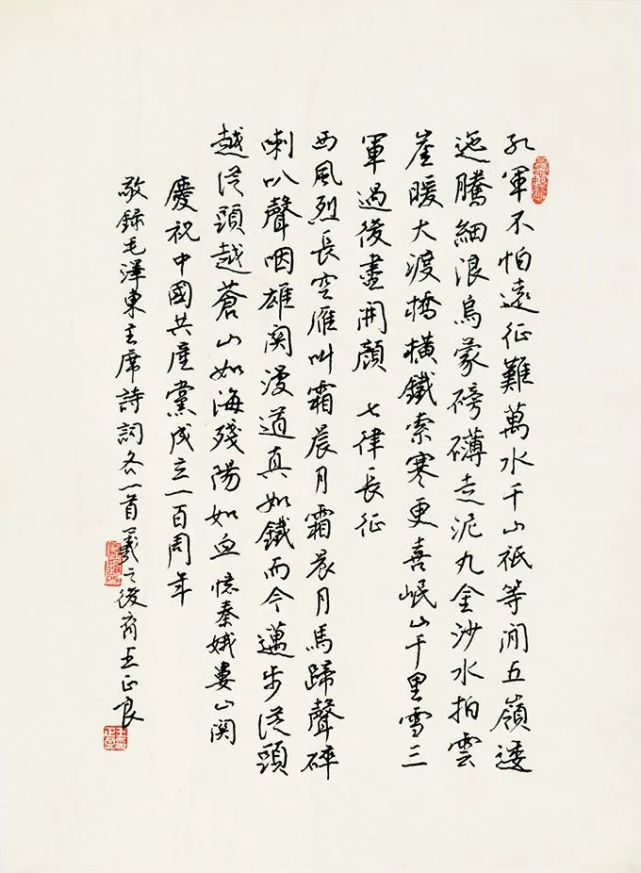 紅軍不怕遠征難萬水千山祇等閒五嶺逶
迤騰細浪烏蒙磅礴走泥丸金沙水拍雲
崖暖大渡橋橫鐵索寒更喜岷山千里雪三
軍過後盡開顏 七律長征
西風烈長空雁叫霜晨月霜晨月馬蹄聲碎
喇叭聲咽雄關漫道真如鐵而今邁步從頭
越從頭越蒼山如海殘陽如血 憶秦娥婁山關
慶祝中國共產黨成立一百周年
敬錄毛澤東主席詩詞各一首羲之後裔王正良